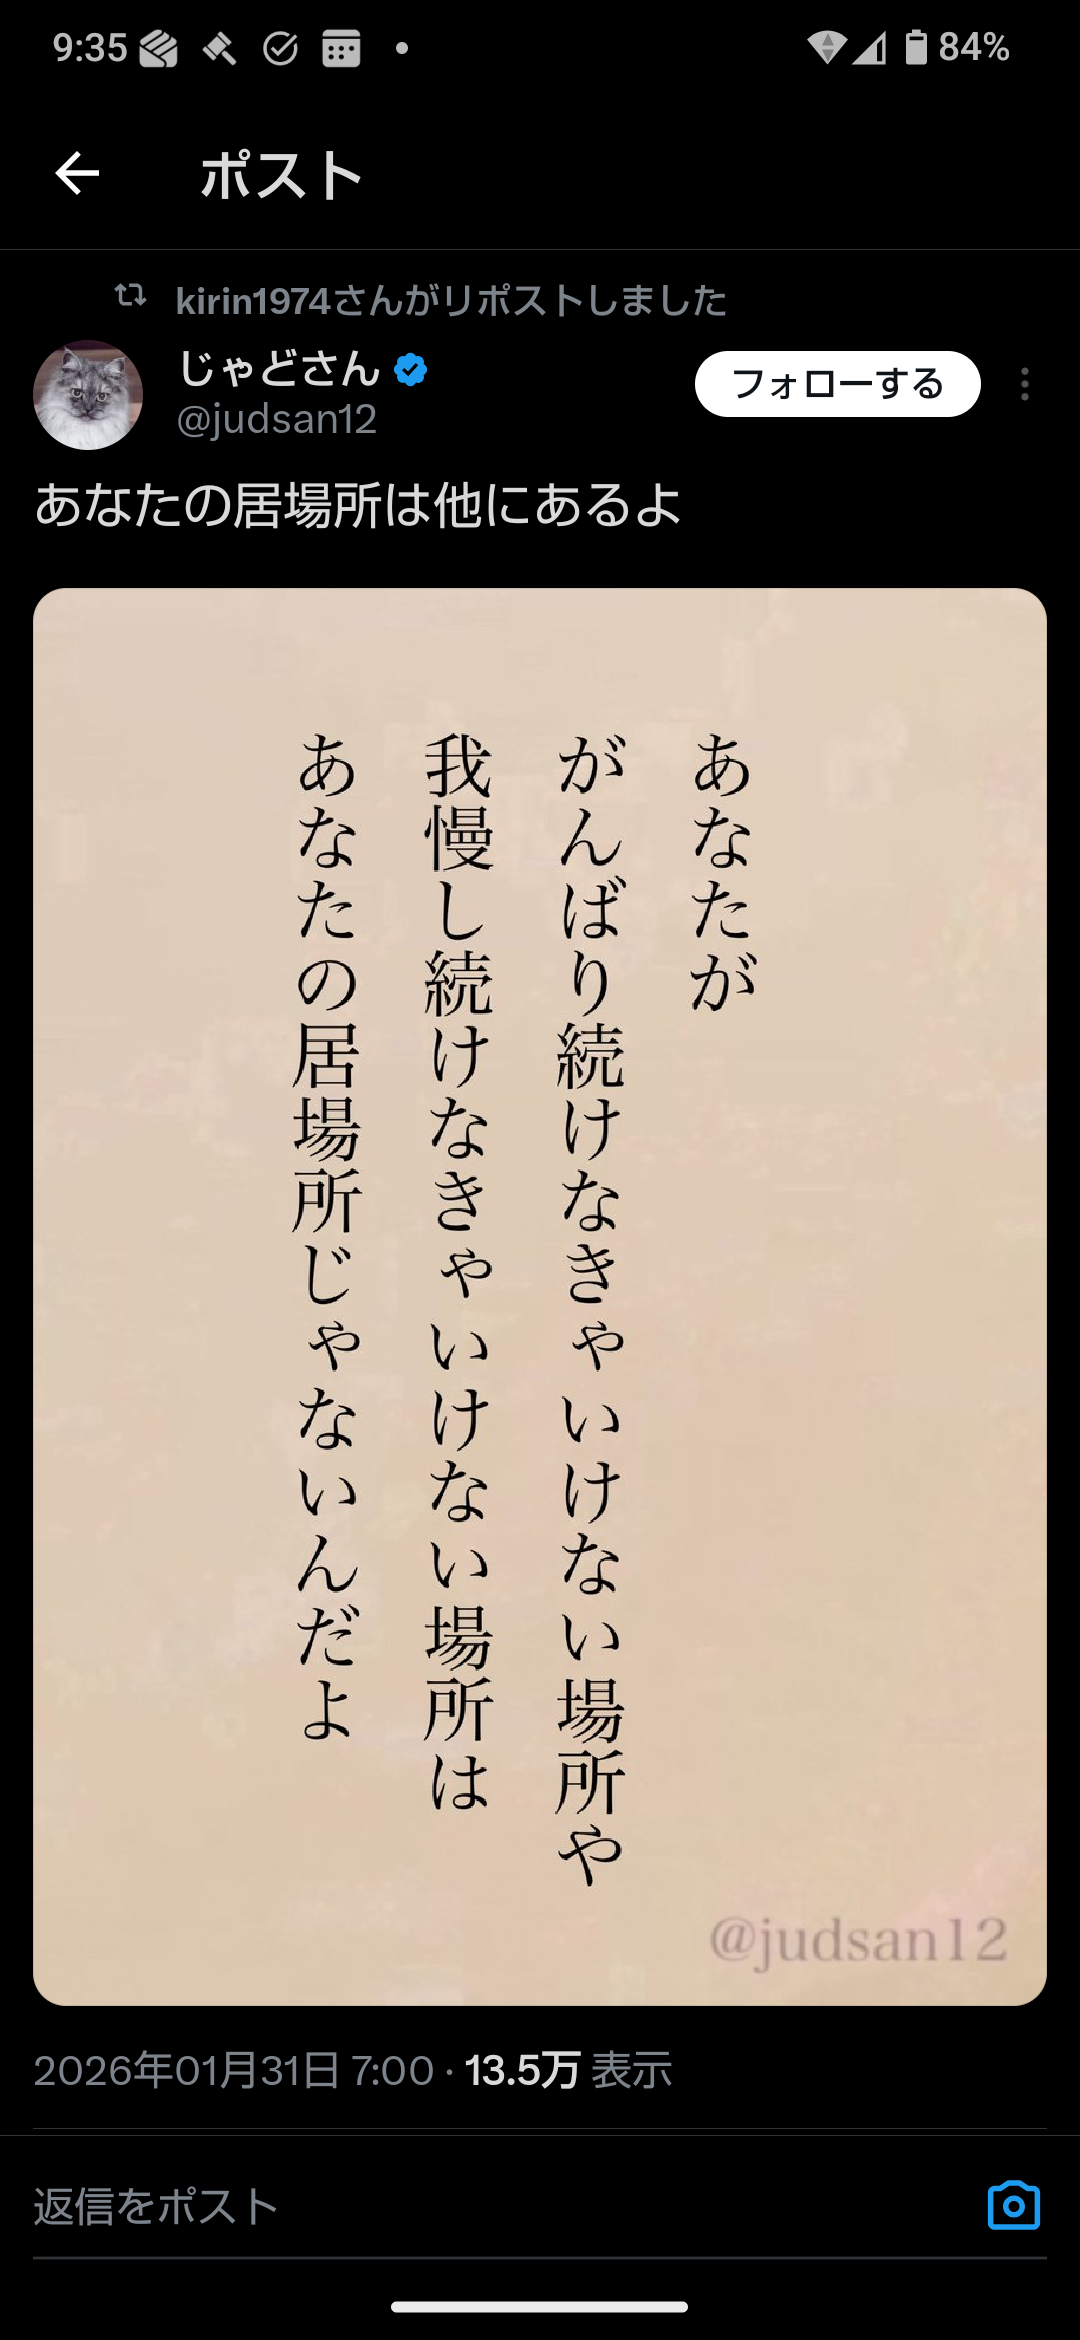 9:35
84%
ポスト
kirin1974さんがリポストしました
じゃどさん
フォローする
@judsan12
あなたの居場所は他にあるよ
あなたが
がんばり続けなきゃいけない場所や
我慢し続けなきゃいけない場所は
あなたの居場所じゃないんだよ
@judsan12
2026年01月31日 7:00 · 13.5万 表示
返信をポスト